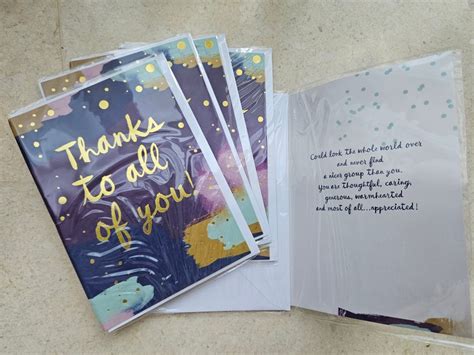 Thanks
to all
of you!
Could look the whole world over
and never find
a nicer group than you.
You are thoughtful, caring,
generous, warmhearted
and most of all...appreciated!